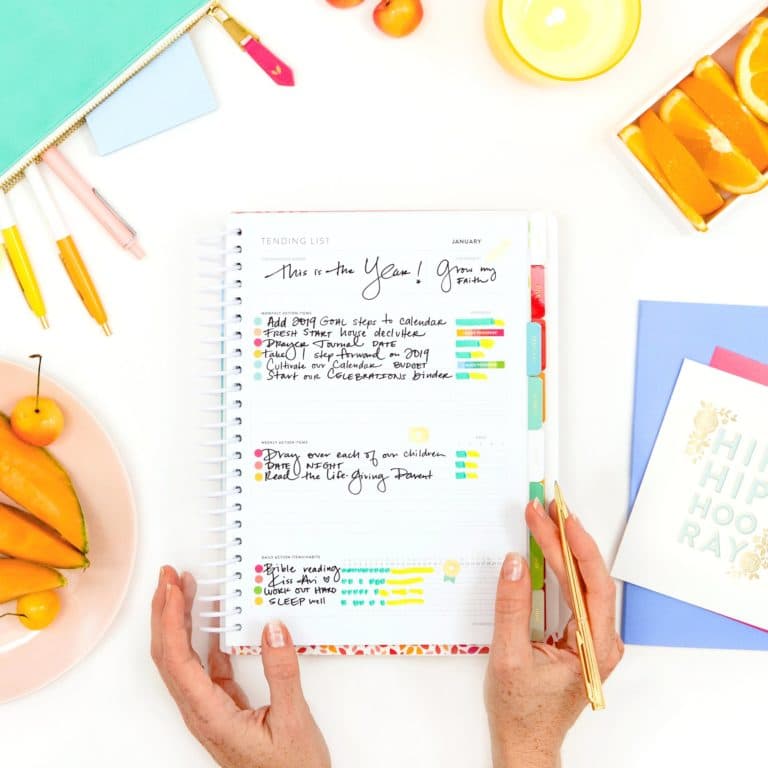 TENDING LIST
JANUARY
This is the Year! Grow my
FAITH
MONTHLY ACTION ITEMS
Add 2019 GOAL steps to calendar
FRESH START house declutter
Prayer Journal DATE
take 1 step forward on 2019
Cultivate our Calendar BUDGET
Start our CELEBRATIONS binder
WEEKLY ACTION ITEMS
Pray over each of our children
DATE NIGHT
Read the Life-Giving Parent
DAILY ACTION ITEMS/HABITS
Bible reading
Kiss Ari
WORK OUT HARD
SLEEP well
HIP
HIP
HOO
RAY